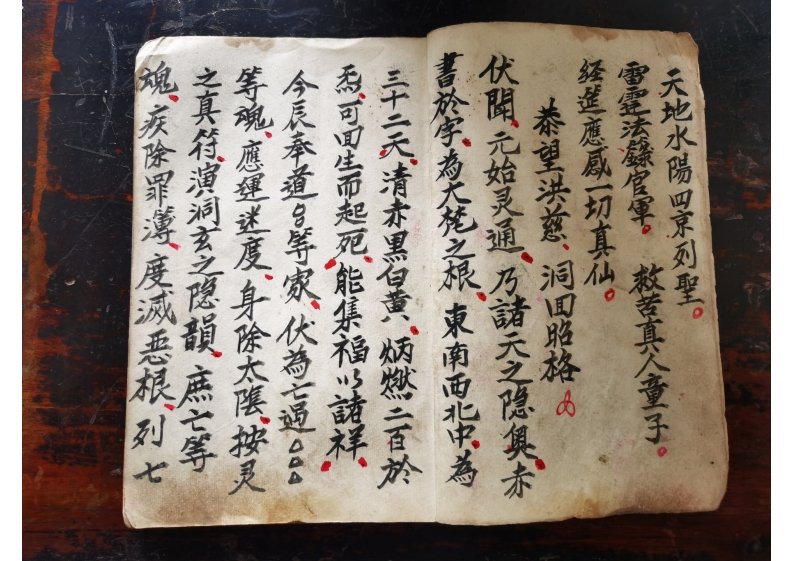 天地水陽四京列聖。
雷霆法籙官軍。救苦真人童子。
經筵應感一切真仙。
恭望洪慈、洞回昭格
伏聞、元始灵通、乃諸天之隐奥、赤
書於字、為大梵之根、東南西北中、為
三十二天、清赤黑白黄、炳燃二百於
炁、可回生而起死、能集福以諸祥、
今辰奉道 等家、伏為亡過△△△
等魂、應運迷度、身除太陰、按灵
之真符、演洞玄之隐韻、庶亡等
魂、疾除罪薄、度滅恶根、列七